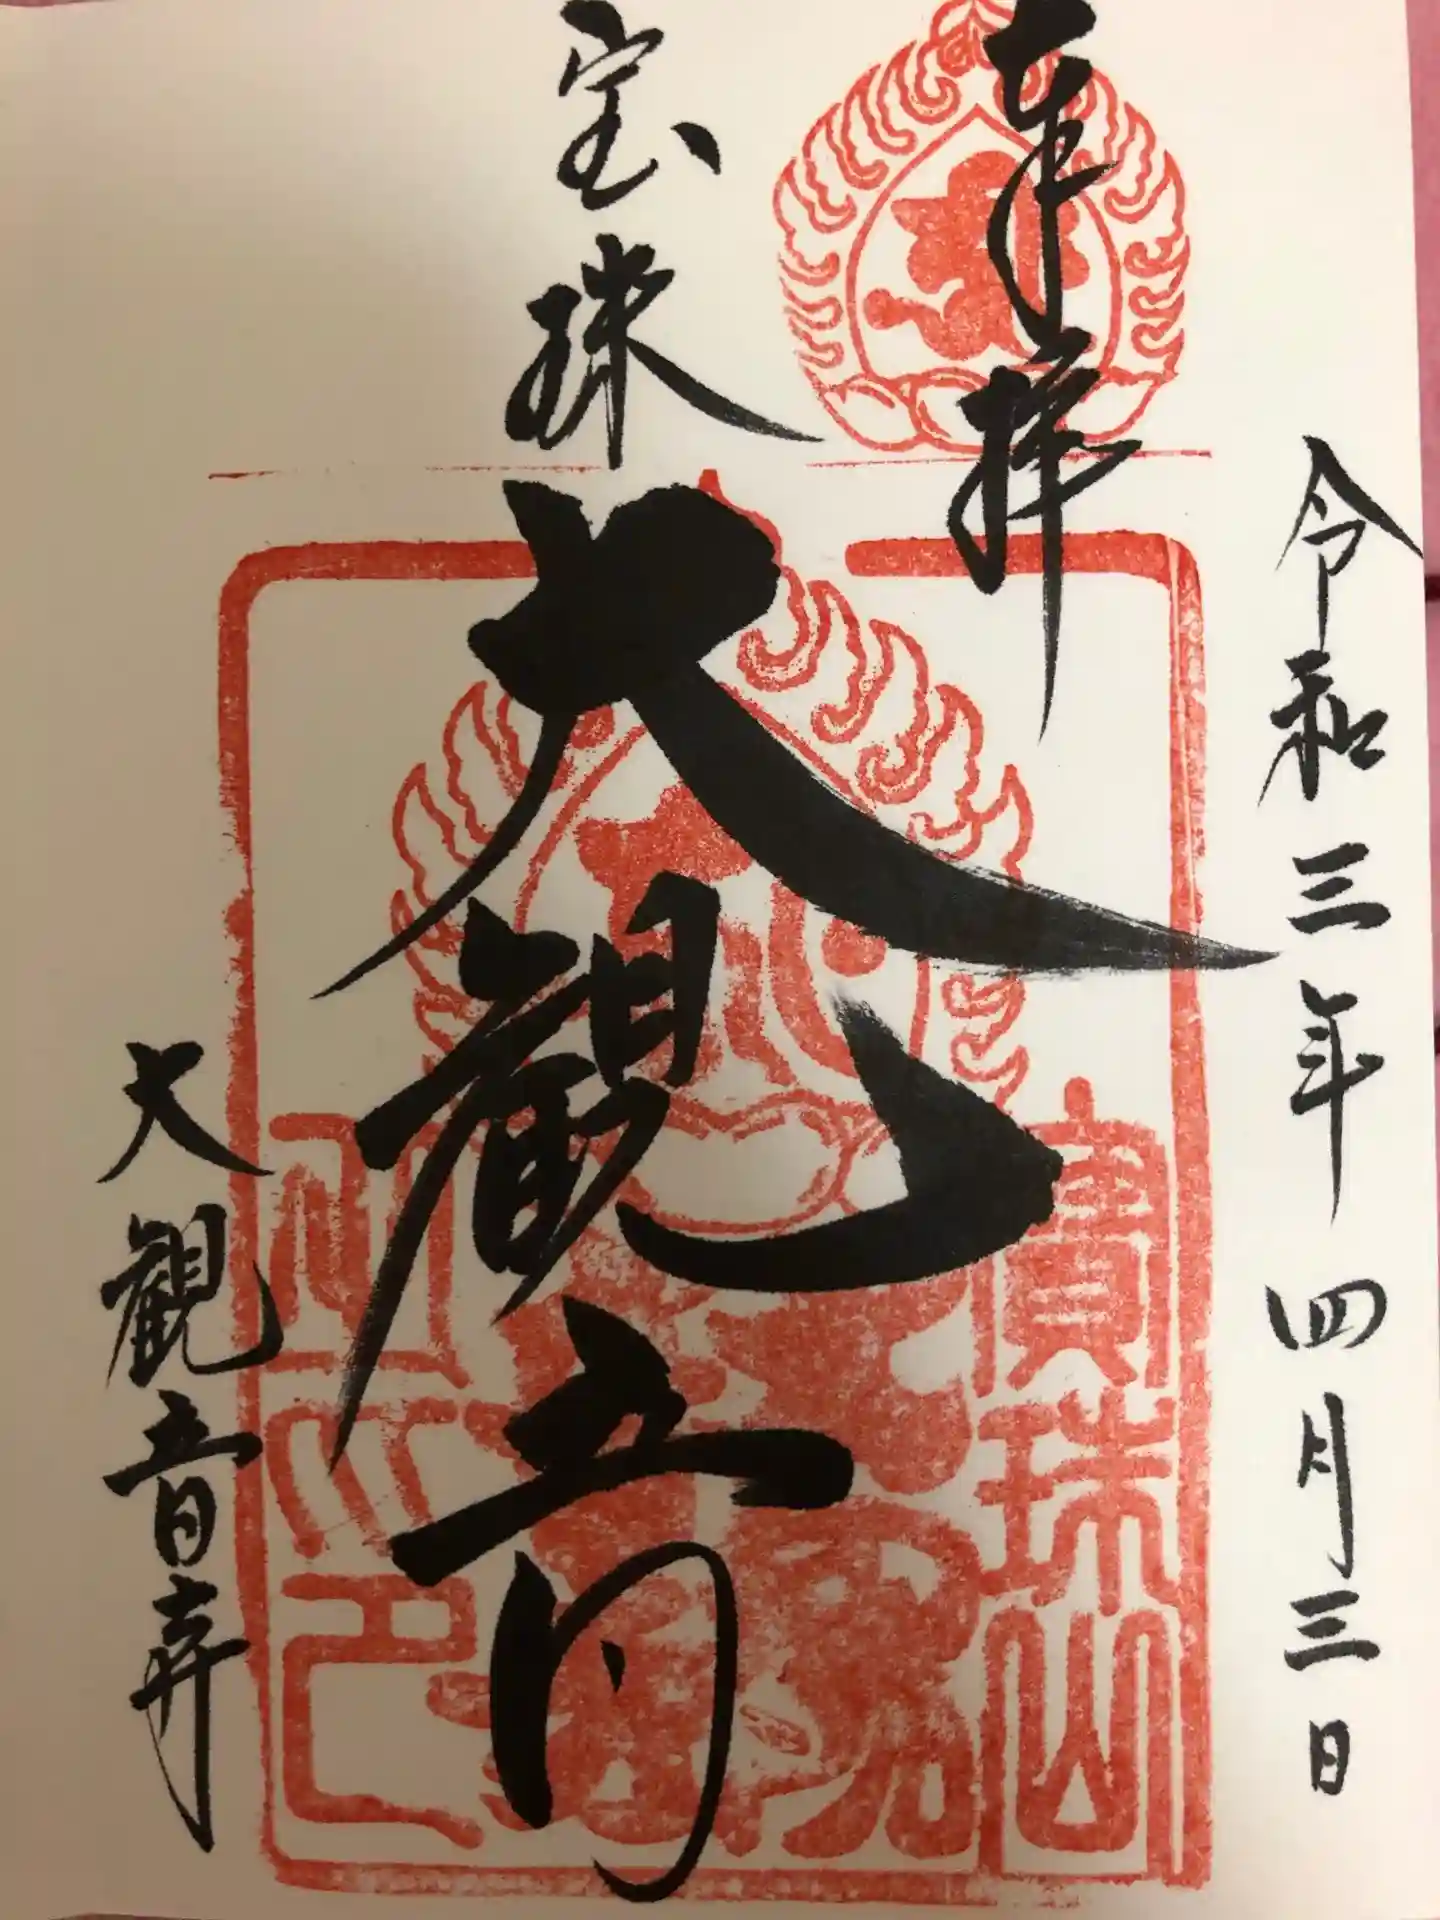 令和三年四月三日
奉拝
宝珠
大観音
大観音寺
寳珠山